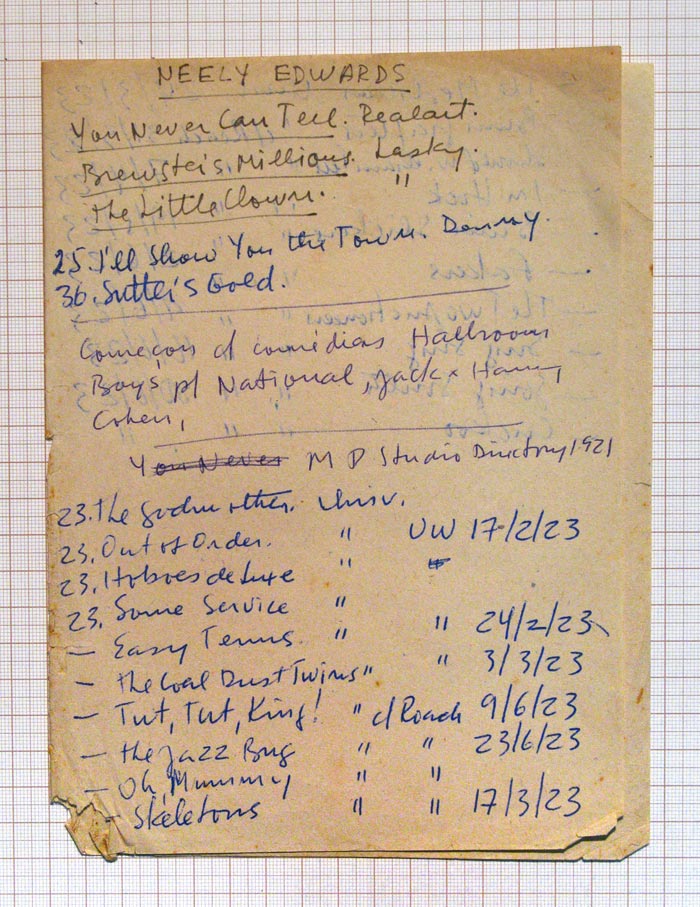 NEELY EDWARDS
You Never Can Tell. Realart.
Brewster's Millions. Lasky.
the Little Clown. "
25. I'll Show You the Town. Denny.
36. Sutter's Gold.
Começou c/ comédias Hallroom
Boys' p/ National, Jack + Harry
Cohen,
You Never M P Studio Directory 1921
23. the Godmother. Univ.
23. Out of Order. " UW 17/2/23
23. Hoboes de Luxe " "
23. Some Service "
— Easy Terms. " " 24/2/23
— the Coal Dust Twins " " 3/3/23
— Tut, Tut, King! " c/ Roach 9/6/23
— the Jazz Bug " " 23/6/23
— Oh, Mummy " "
— Skeletons " " 17/3/23